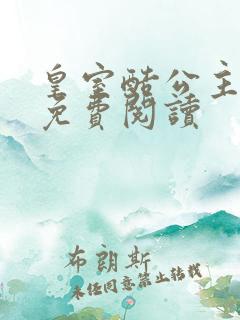 皇室酷公主
免費閱讀
布朗斯
未经同意禁止转载